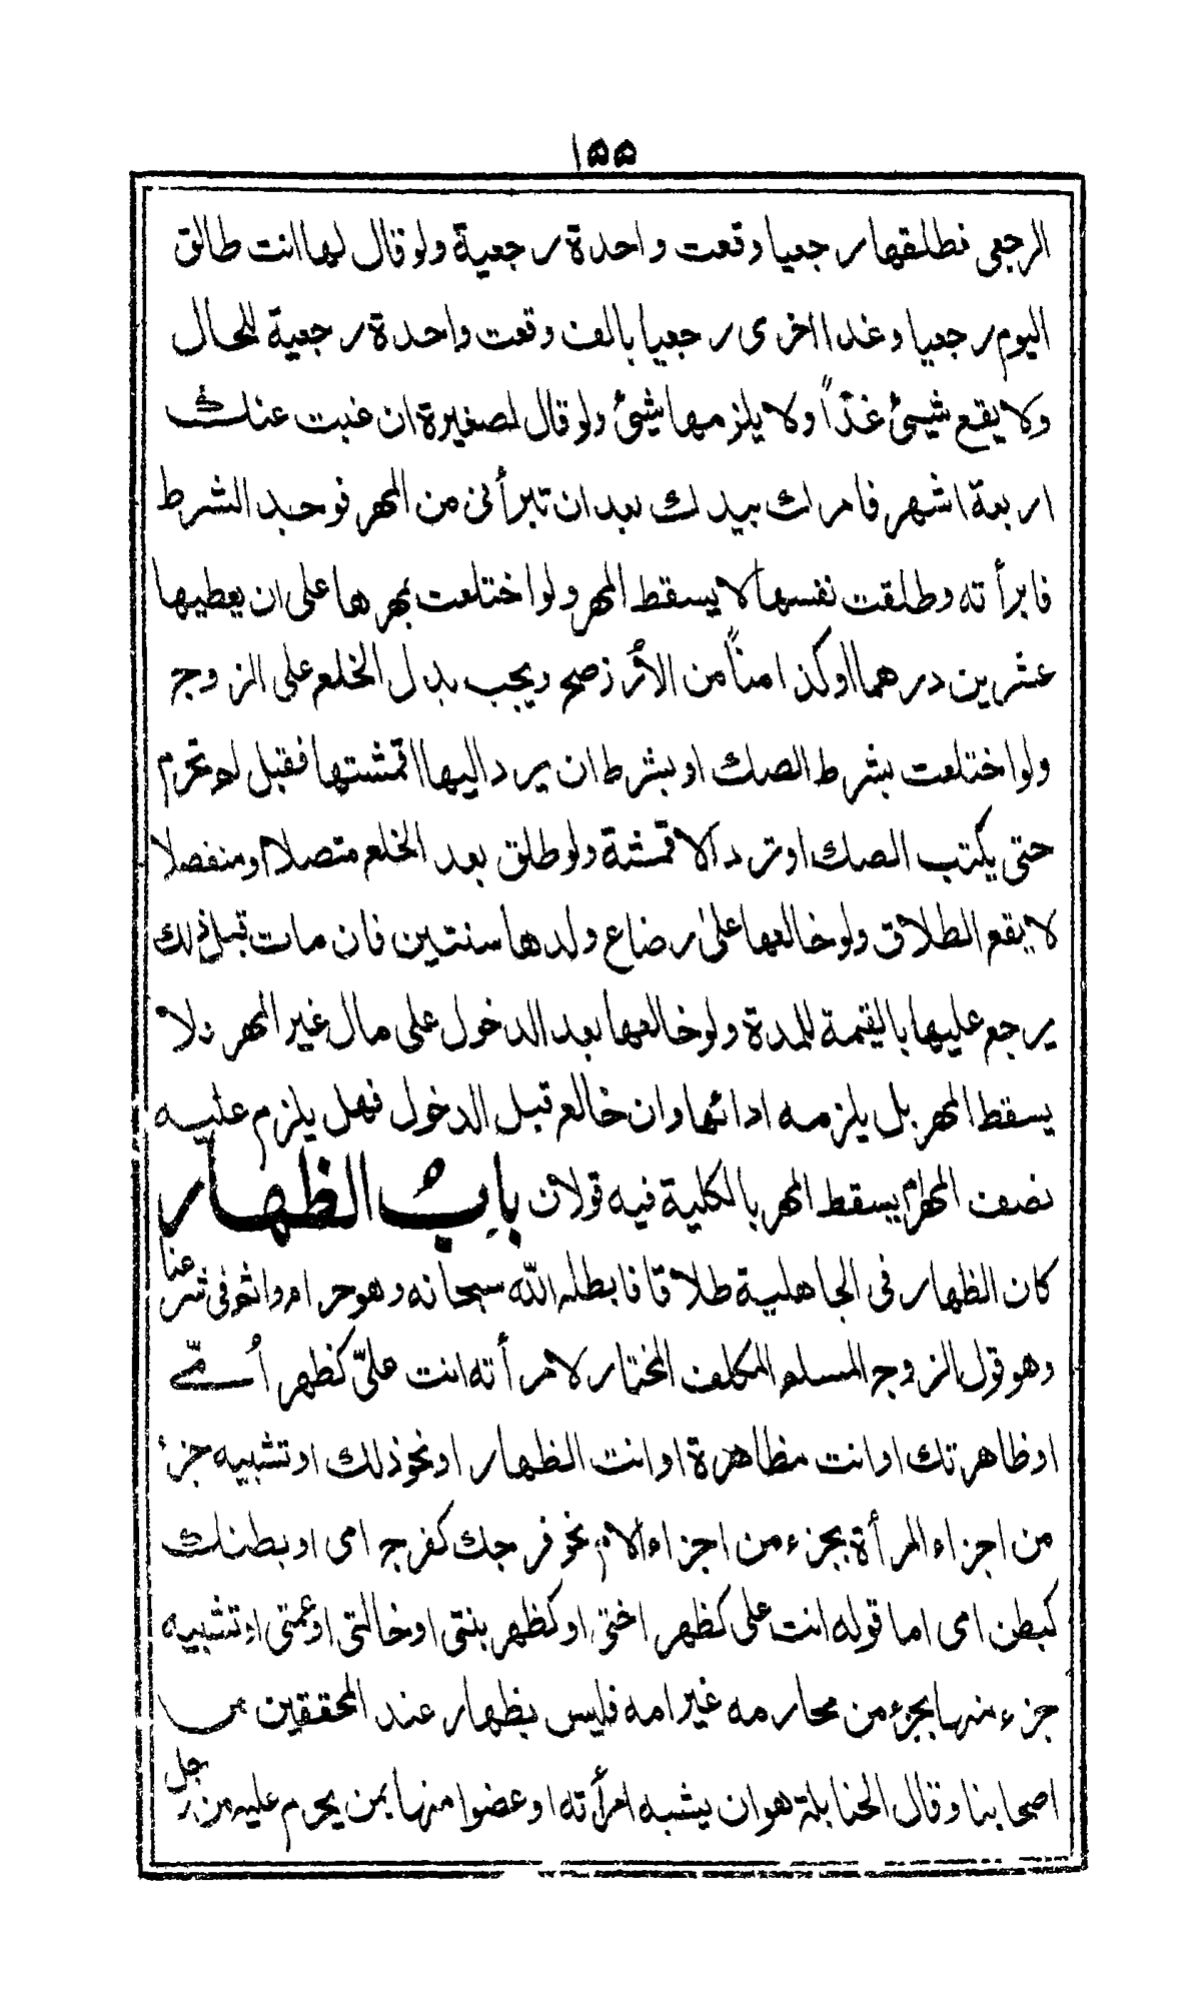 ١٥٥
الرجعي فطلقها رجعيا وقعت واحدة رجعية ولو قال لها انت طالق
اليوم رجعيا وغدا اخرى رجعيا بالف وقعت واحدة رجعية للحال
ولا يقع شيئ غدًا ولا يلزمها شيئ ولو قال لصغيرة ان غبت عنك
اربعة اشهر فامرك بيدك بعد ان تبرأني من المهر فوجد الشرط
فابرأته وطلقت نفسها لا يسقط المهر ولو اختلعت بمهرها على ان يعطيها
عشرين درهما او كذا مناً من الأرز صح ويجب بدل الخلع على الزوج
ولو اختلعت بشرط الصك او بشرط ان يرد اليها اقمشتها فقبل لم تحرم
حتى يكتب الصك او ترد الاقمشة ولو طلق بعد الخلع متصلا او منفصلا
لا يقع الطلاق ولو خالعها على رضاع ولدها سنتين فان مات قبل ذلك
يرجع عليها بالقيمة للمدة ولو خالعها بعد الدخول على مال غير المهر ولا
يسقط المهر بل يلزمه ادائها وان خالع قبل الدخول فهل يلزم عليه
نصف المهر ام يسقط المهر بالكلية فيه قولان باب الظهار
كان الظهار في الجاهلية طلاقا فابطله الله سبحانه وهو حرام واثم في شرعنا
وهو قول الزوج المسلم المكلف المختار لامرأته انت عليّ كظهر أمّي
او ظاهرتك او انت مظاهرة او انت الظهار او نحو ذلك او تشبيه جزء
من اجزاء المرأة بجزء من اجزاء الام نحو فرجك كفرج امي او بطنك
كبطن امي اما قوله انت علي كظهر اختي او كظهر بنتي او خالتي او عمتي او تشبيه
جزء منها بجزء من محارمه غير امه فليس بظهار عند المحققين من
اصحابنا وقال الحنابلة هو ان يشبه امرأته او عضوا منها بمن يحرم عليه من رجل